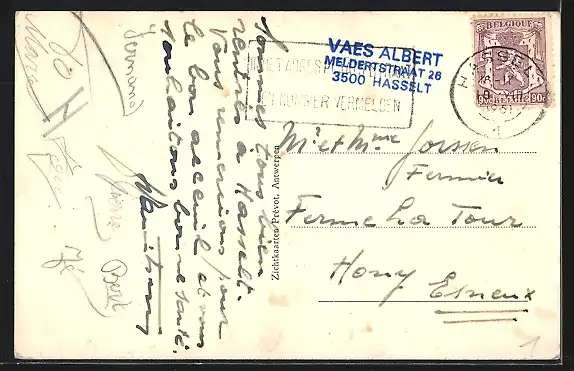 Sommes tous bien
rentrés à Hasselt.
Vous remercions pour
le bon accueil, et vous
souhaitons bonne santé.
Fernand
Yvonne
Bert
VAES ALBERT
MELDERTSTRAAT 26
3500 HASSELT
NUMMER VERMELDEN
HASSELT
BELGIQUE
90c BELGIË 90c
Zichtkaarten Prévot, Antwerpen
Mr et Mme Jorssen
Fermier
Ferme La Tour
Hony Esneux
1